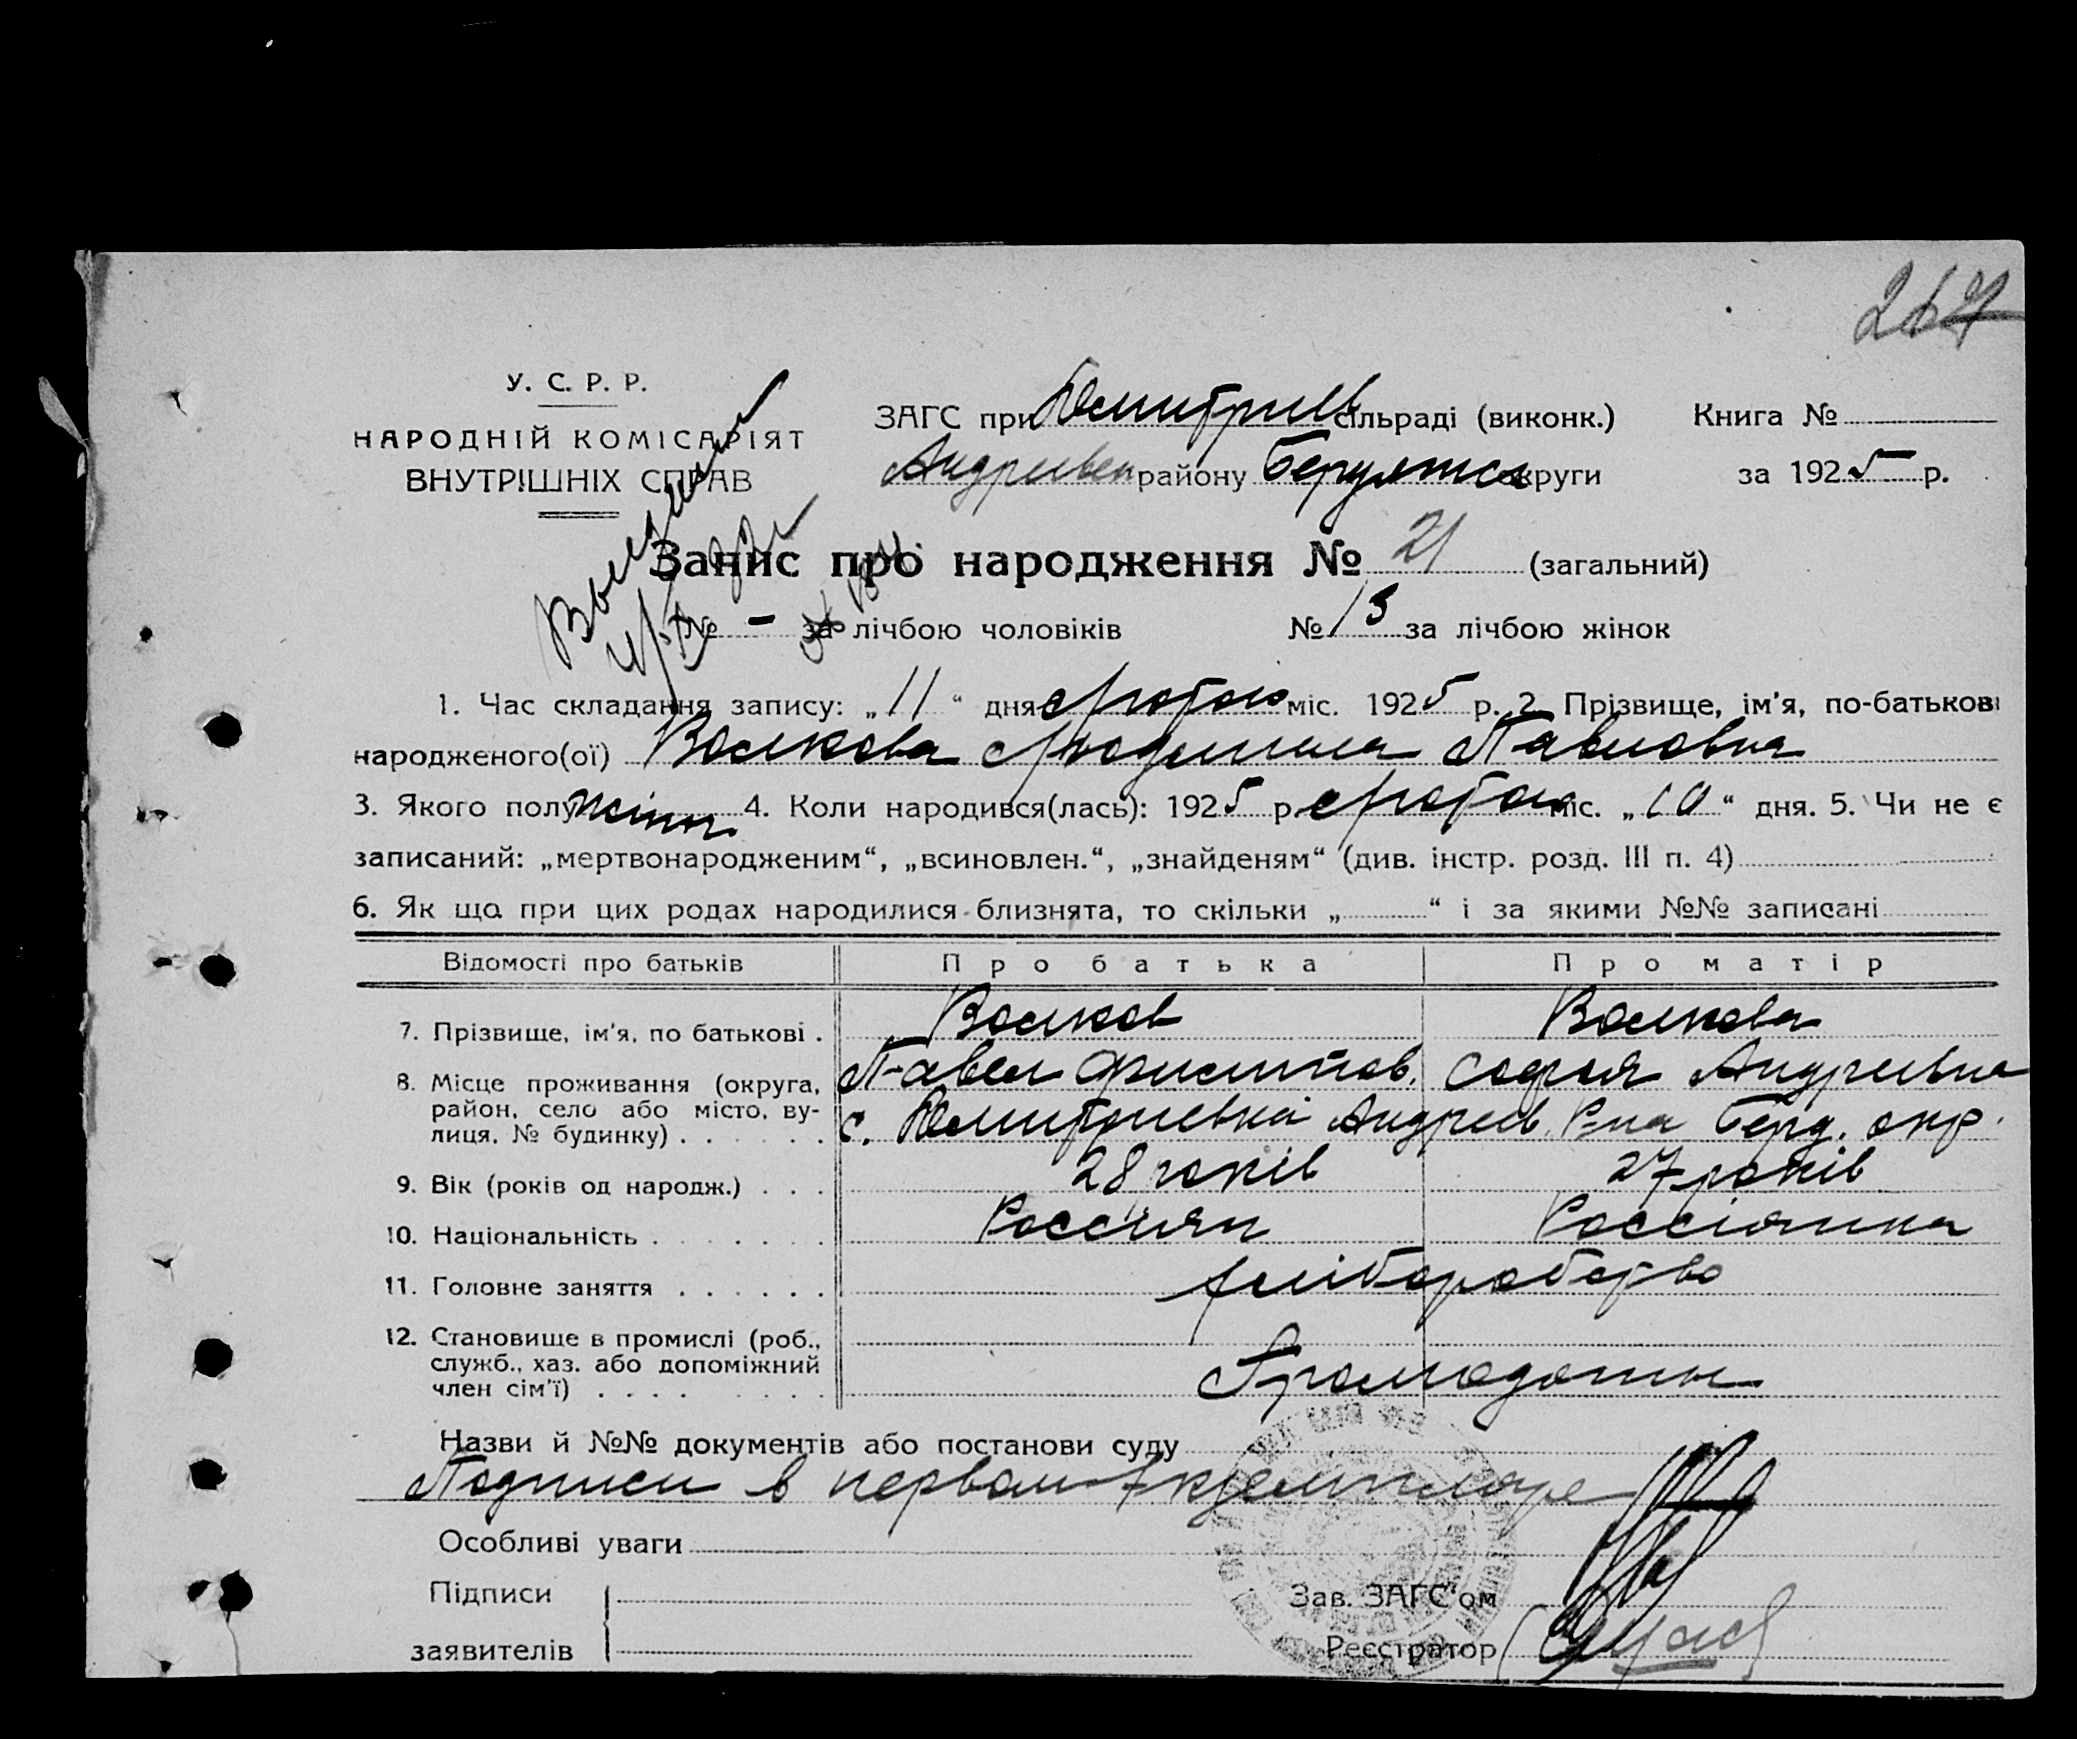 267
У. С. Р. Р.
НАРОДНІЙ КОМІСАРІЯТ
ВНУТРІШНІХ СПРАВ
ЗАГС при Дмитриев сільраді (виконк.) Книга №
Андреевск району Бердянск округи за 1925 р.
Запис про народження № 21 (загальний)
№ - за лічбою чоловіків № 13 за лічбою жінок
1. Час складання запису: „11“ дня Лютого міс. 1925 р. 2. Прізвище, ім'я, по-батькові
народженого(ої) Волкова Людмила Павловна
3. Якого полу жіноч. 4. Коли народився(лась): 1925 р. Лютого міс. „10“ дня. 5. Чи не є
записаний: „мертвонародженим“, „всиновлен.“, „знайденям“ (див. інстр. розд. III п. 4)
6. Як що при цих родах народилися близнята, то скільки „ “ і за якими №№ записані
Відомості про батьків Про батька Про матір
7. Прізвище, ім'я, по батькові . Волков Волкова
Павел Филипов. Софья Андреевна
8. Місце проживання (округа,
район, село або місто, ву-
лиця, № будинку) . . . . . . с. Дмитриевка Андреев. Р-на Берд. окр.
9. Вік (років од народж.) . . . 28 років 27 років
10. Національність . . . . . . . Россиян Россіянка
11. Головне заняття . . . . . . хліборобство
12. Становище в промислі (роб.,
служб., хаз. або допоміжний
член сім'ї) . . . . . . . . .
Назви й №№ документів або постанови суду
Подписи в первом экземпляре
Особливі уваги
Підписи
заявителів
Зав. ЗАГС'ом
Реєстратор